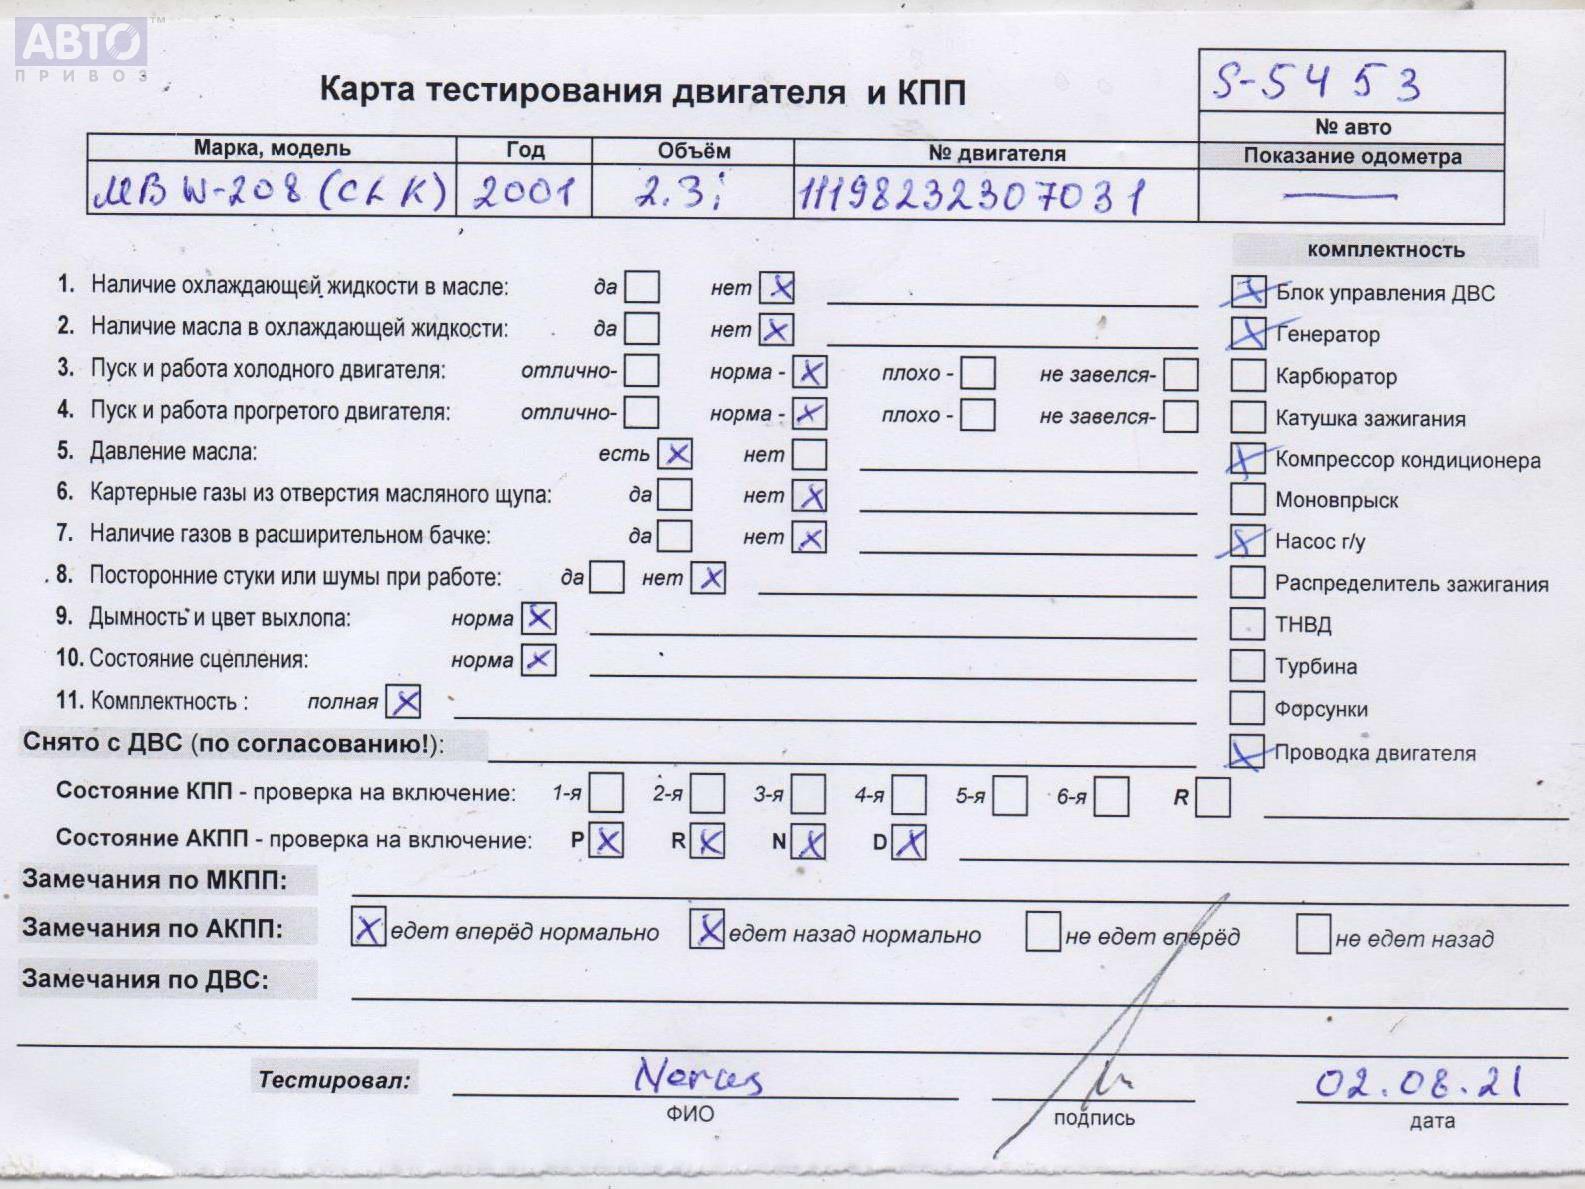 АВТО™
ПРИВОЗ
Карта тестирования двигателя и КПП
S-5453
№ авто
Марка, модель Год Объём № двигателя Показание одометра
МВ W-208 (CLK) 2001 2.3i 11198232307031 —
комплектность
1. Наличие охлаждающей жидкости в масле: да нет X
2. Наличие масла в охлаждающей жидкости: да нет X
3. Пуск и работа холодного двигателя: отлично- норма - X плохо - не завелся-
4. Пуск и работа прогретого двигателя: отлично- норма - X плохо - не завелся-
5. Давление масла: есть X нет
6. Картерные газы из отверстия масляного щупа: да нет X
7. Наличие газов в расширительном бачке: да нет X
8. Посторонние стуки или шумы при работе: да нет X
9. Дымность и цвет выхлопа: норма X
10. Состояние сцепления: норма X
11. Комплектность : полная X
X Блок управления ДВС
X Генератор
Карбюратор
Катушка зажигания
X Компрессор кондиционера
Моновпрыск
X Насос г/у
Распределитель зажигания
ТНВД
Турбина
Форсунки
X Проводка двигателя
Снято с ДВС (по согласованию!):
Состояние КПП - проверка на включение: 1-я 2-я 3-я 4-я 5-я 6-я R
Состояние АКПП - проверка на включение: P X R X N X D X
Замечания по МКПП:
Замечания по АКПП: X едет вперёд нормально X едет назад нормально не едет вперёд не едет назад
Замечания по ДВС:
Тестировал: 02.08.21
ФИО подпись дата